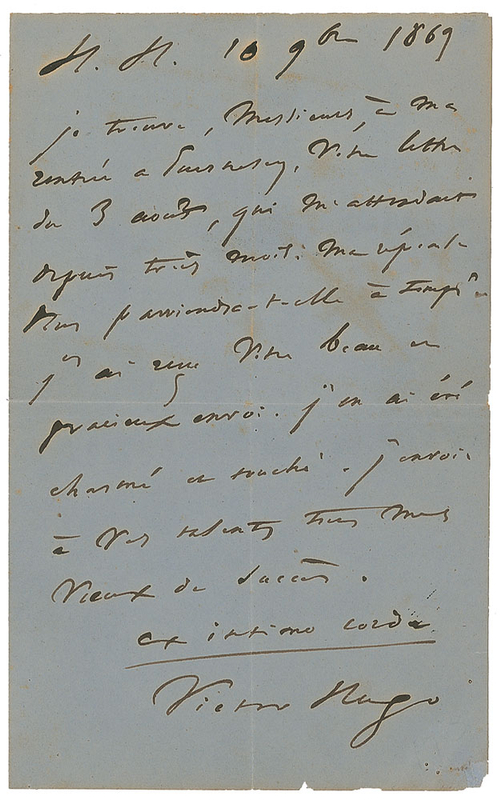 H. H. 10 9bre 1869
je trouve, Messieurs, à ma
rentrée à Guernesey, votre lettre
du 3 août, qui m'attendait
depuis trois mois. Ma réponse
vous parviendra-t-elle à temps ?
j'ai reçu votre beau et
gracieux envoi. j'en ai été
charmé et touché. j'envoie
à vos talents tous mes
vœux de succès.
ex intimo corde
Victor Hugo